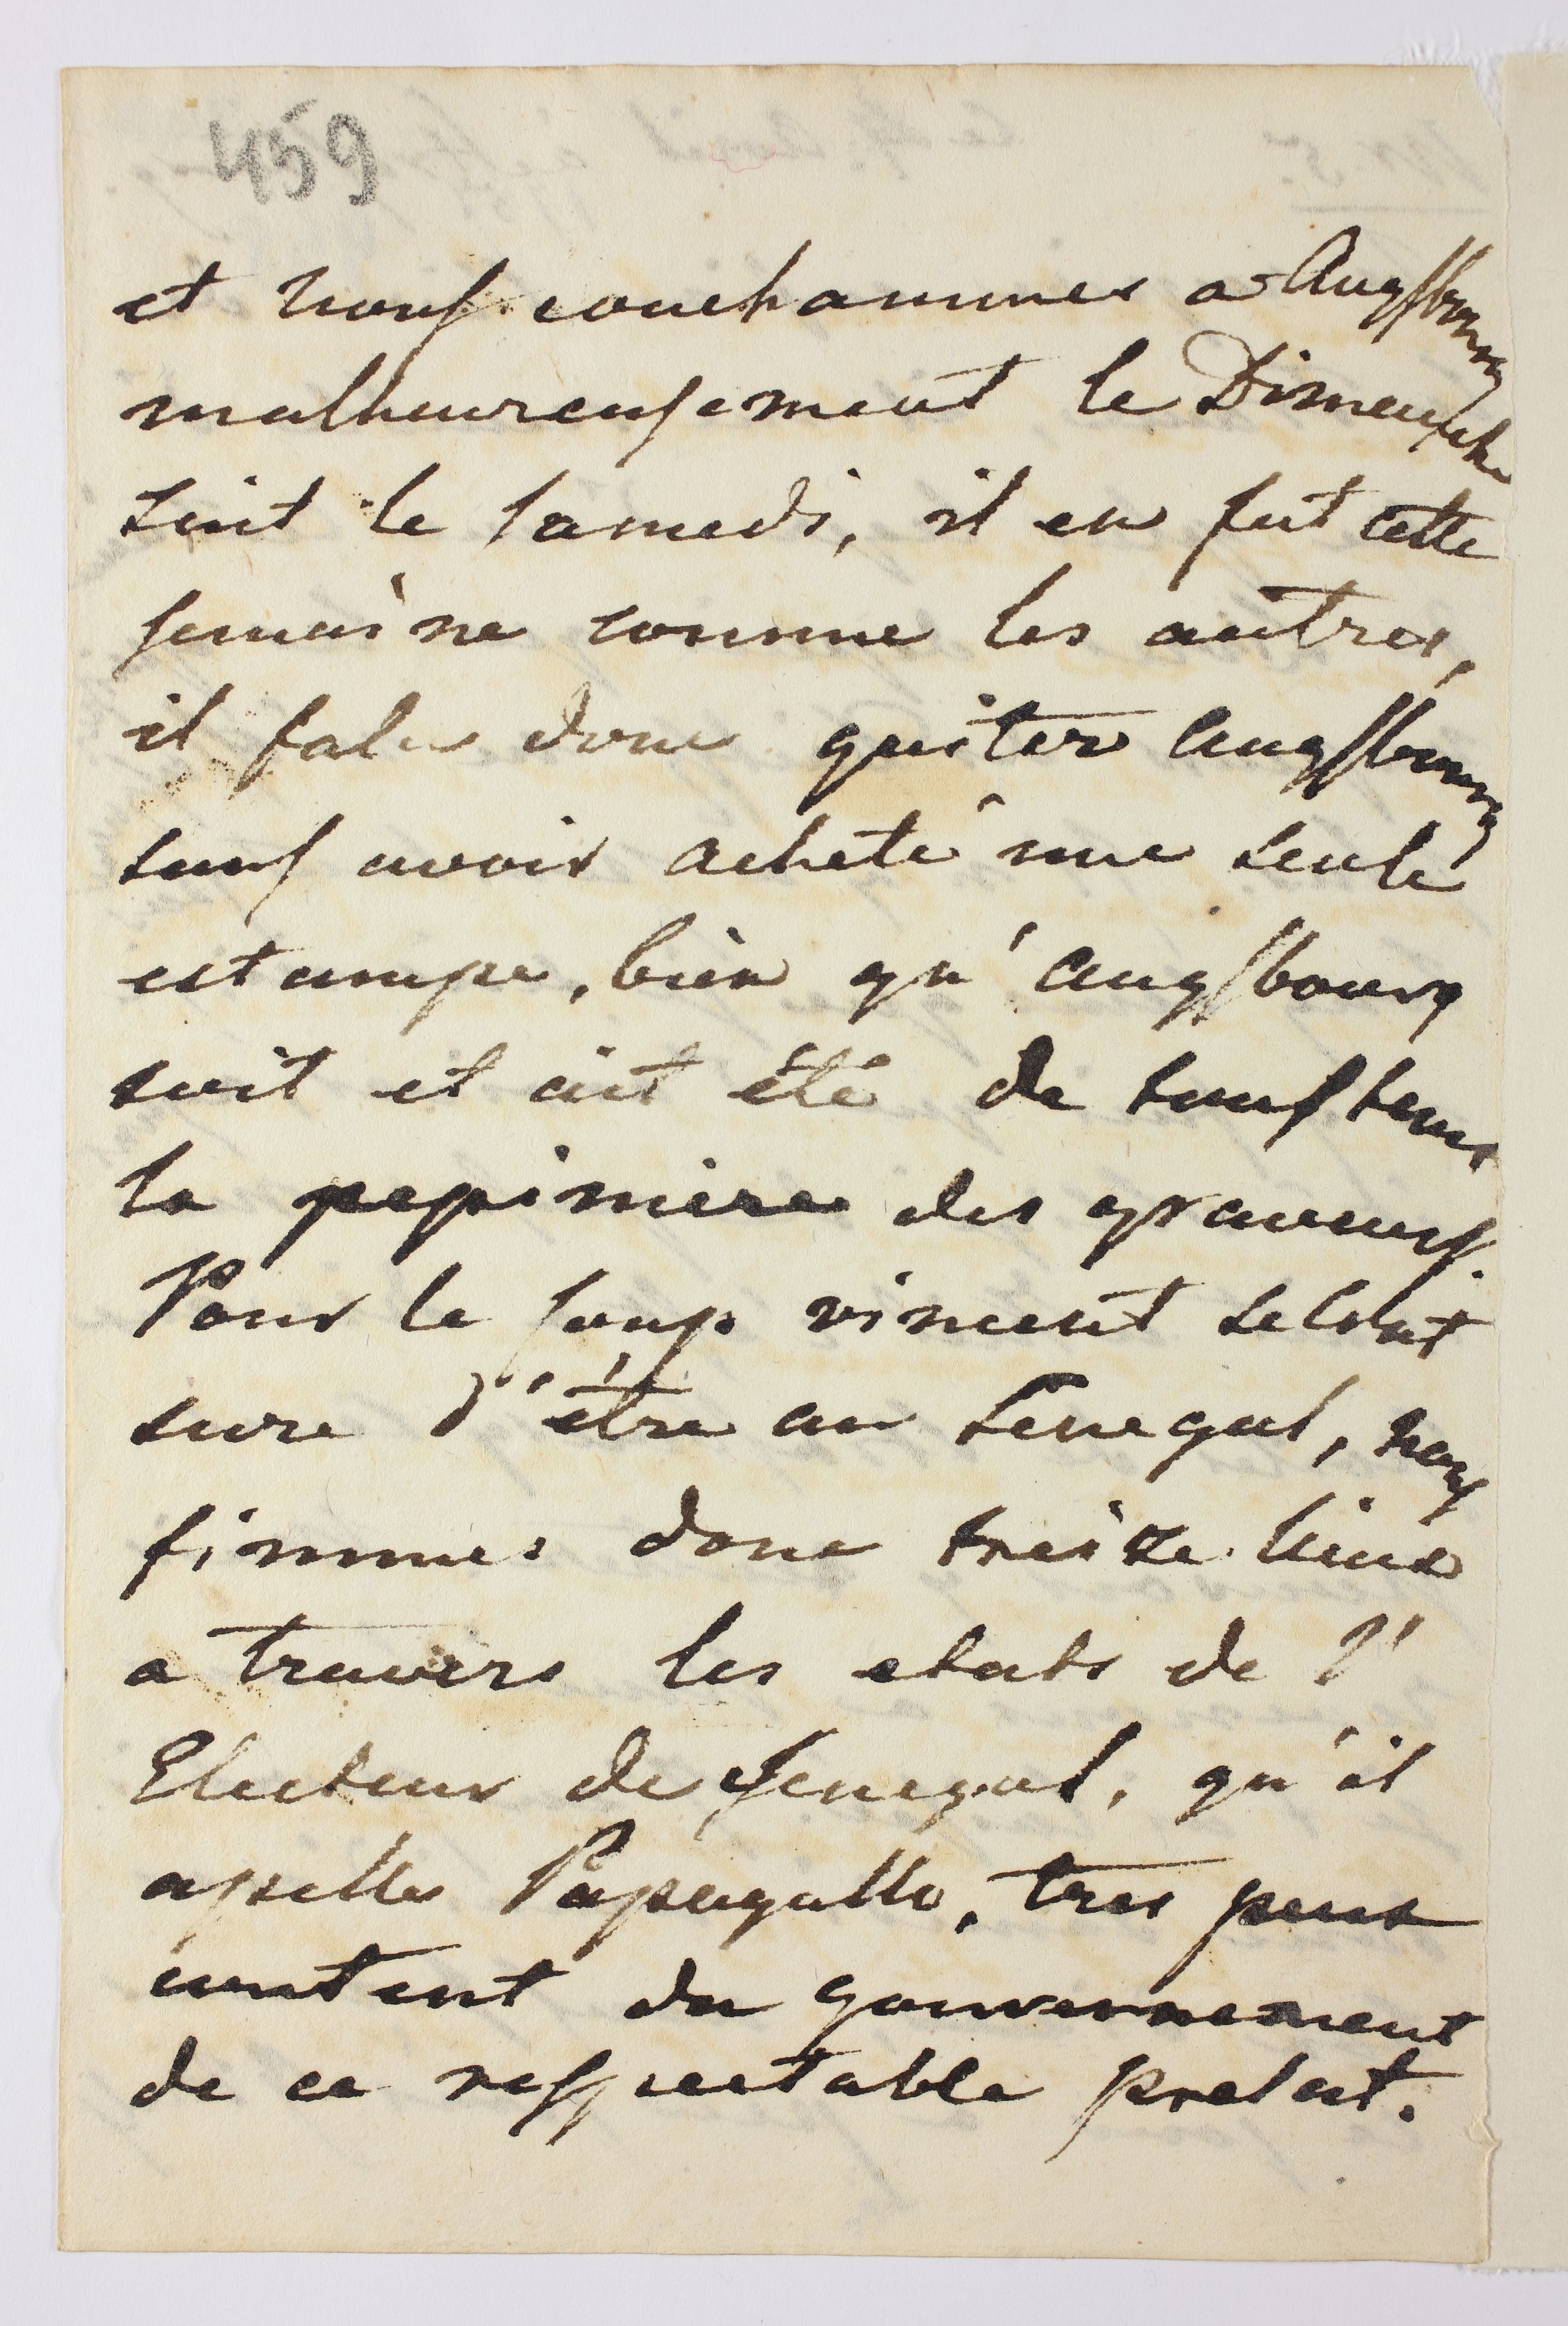 459
et nous couchammes a Augsbourg
malheureusement le Dimanche
suit le samedi, il en fut cette
semaine comme les autres,
il falu donc quiter Augsbourg
sans avoir acheté une seule
estampe, bien qu'Augsbourg
soit et ait été de tous tems
la pepiniere des graveurs.
Pour le coup vincent
sure d'être au Senegal, nous
fimmes donc treize lieus
a travers les etats de l'
Electeur de Senegal, qu'il
apelle Papagallo, tres peux
content du gouvernement
de ce respectable prelat.